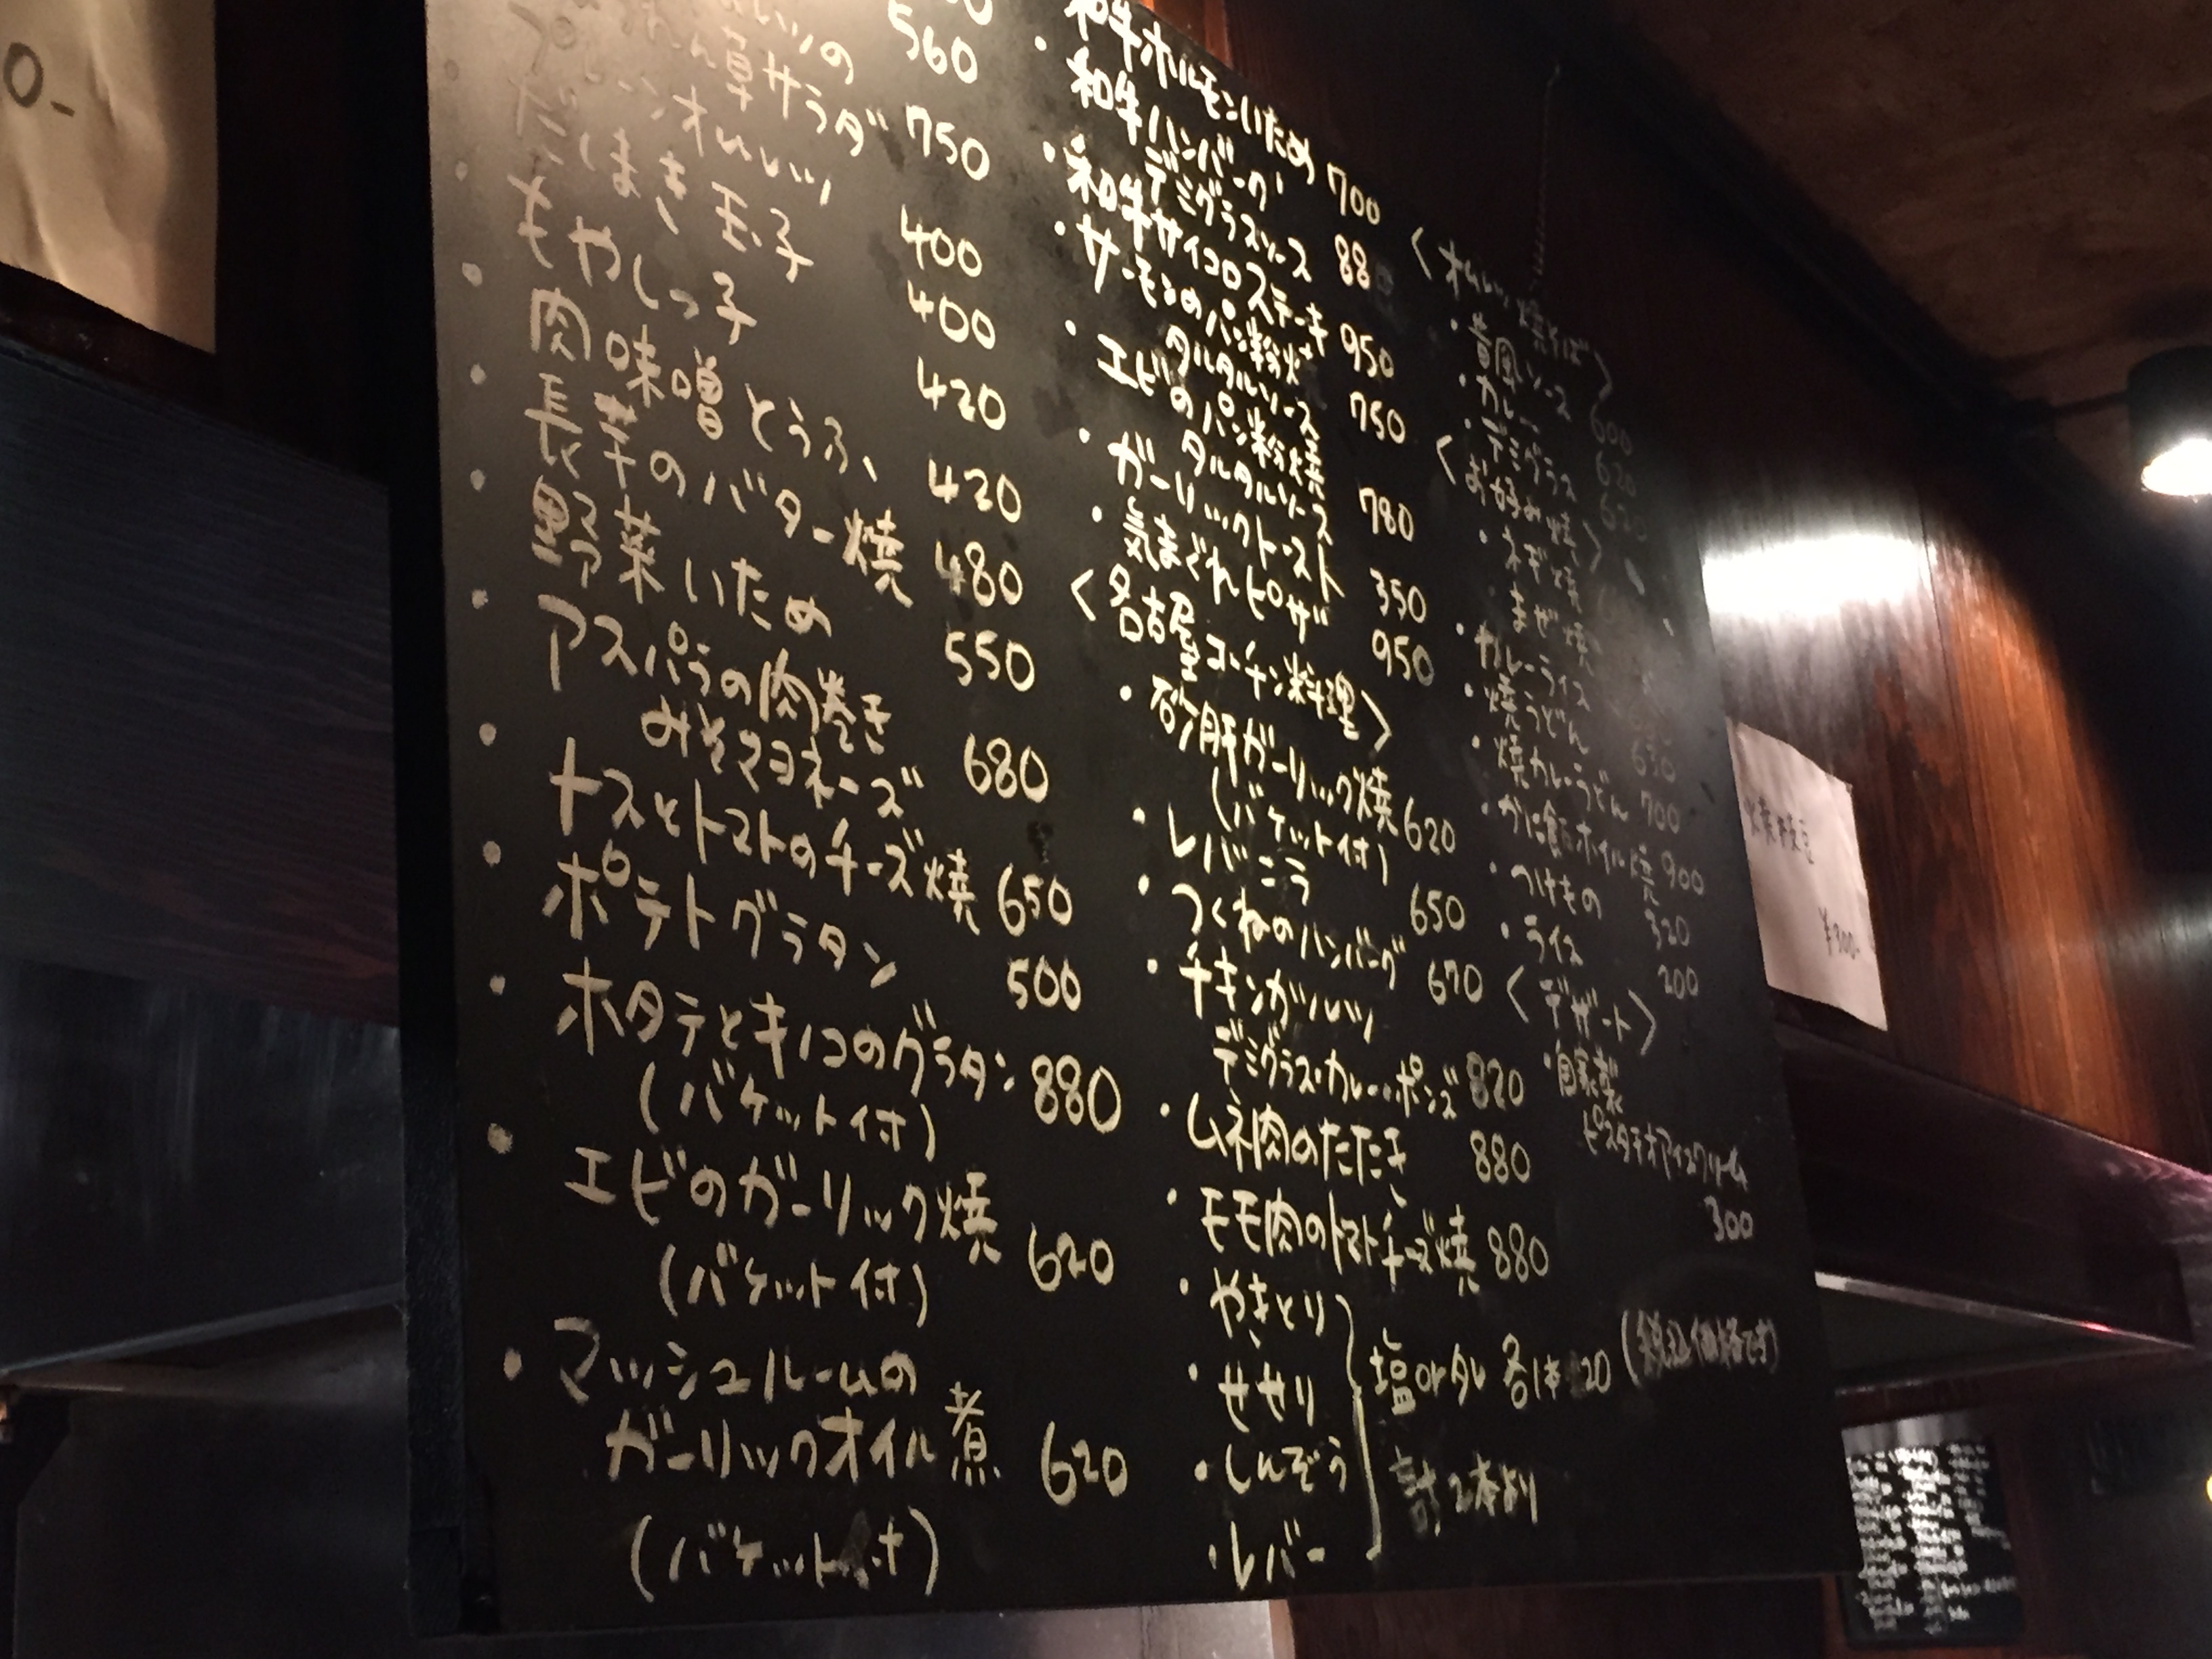 560
ほうれん草サラダ 750
プレーンオムレツ 400
だしまき玉子 400
もやしっ子 420
肉味噌とうふ 420
長芋のバター焼 480
野菜いため 550
アスパラの肉巻き
みそマヨネーズ 680
ナスとトマトのチーズ焼 650
ポテトグラタン 500
ホタテとキノコのグラタン 880
(バケット付)
エビのガーリック焼 620
(バケット付)
・マッシュルームの
ガーリックオイル煮 620
(バケット付)
和牛ホルモンいため 700
・和牛ハンバーグ
デミグラスソース 88
・和牛サイコロステーキ 950
・サーモンのパン粉焼
タルタルソース 750
・エビのパン粉焼
タルタルソース 780
・ガーリックトースト 350
・気まぐれピザ 950
<名古屋コーチン料理>
・砂肝ガーリック焼 620
(バケット付)
・レバニラ 650
・つくねのハンバーグ 670
・チキンカツレツ
デミグラス・カレー・ポンズ 820
・ムネ肉のたたき 880
・モモ肉のトマトチーズ焼 880
・やきとり
・せせり
・しんぞう
・レバー
塩orタレ 各1本 20 (税込価格です)
計2本より
<オムレツ焼そば>
・和風ソース 600
・カレー 620
・デミグラス 620
<お好み焼>
・ネギ焼
まぜ焼
・カレーライス
・焼うどん 650
・焼カレーうどん 700
・かに飯ホイル焼 900
・つけもの 320
・ライス 200
<デザート>
・自家製
ピスタチオアイスクリーム
300
枝豆
¥300-
0-